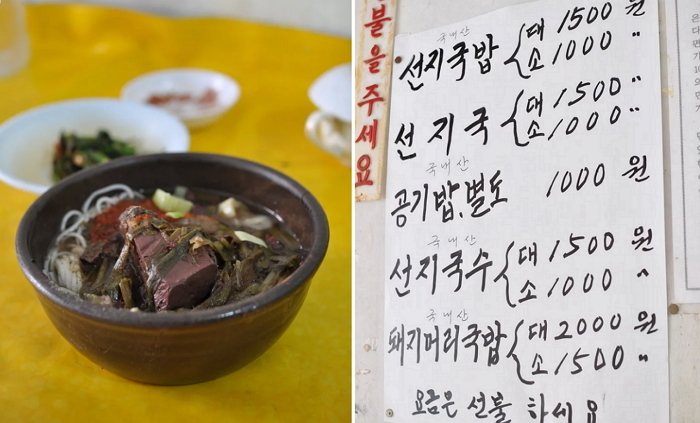 불을 주세요
국내산
선지국밥 { 대 1500 원
소 1000 〃
선지국 { 대 1500 〃
소 1000 〃
국내산
공기밥, 별도 1000 원
국내산
선지국수 { 대 1500 원
소 1000 〃
국내산
돼지머리국밥 { 대 2000 원
소 1500 〃
요금은 선불 하세요